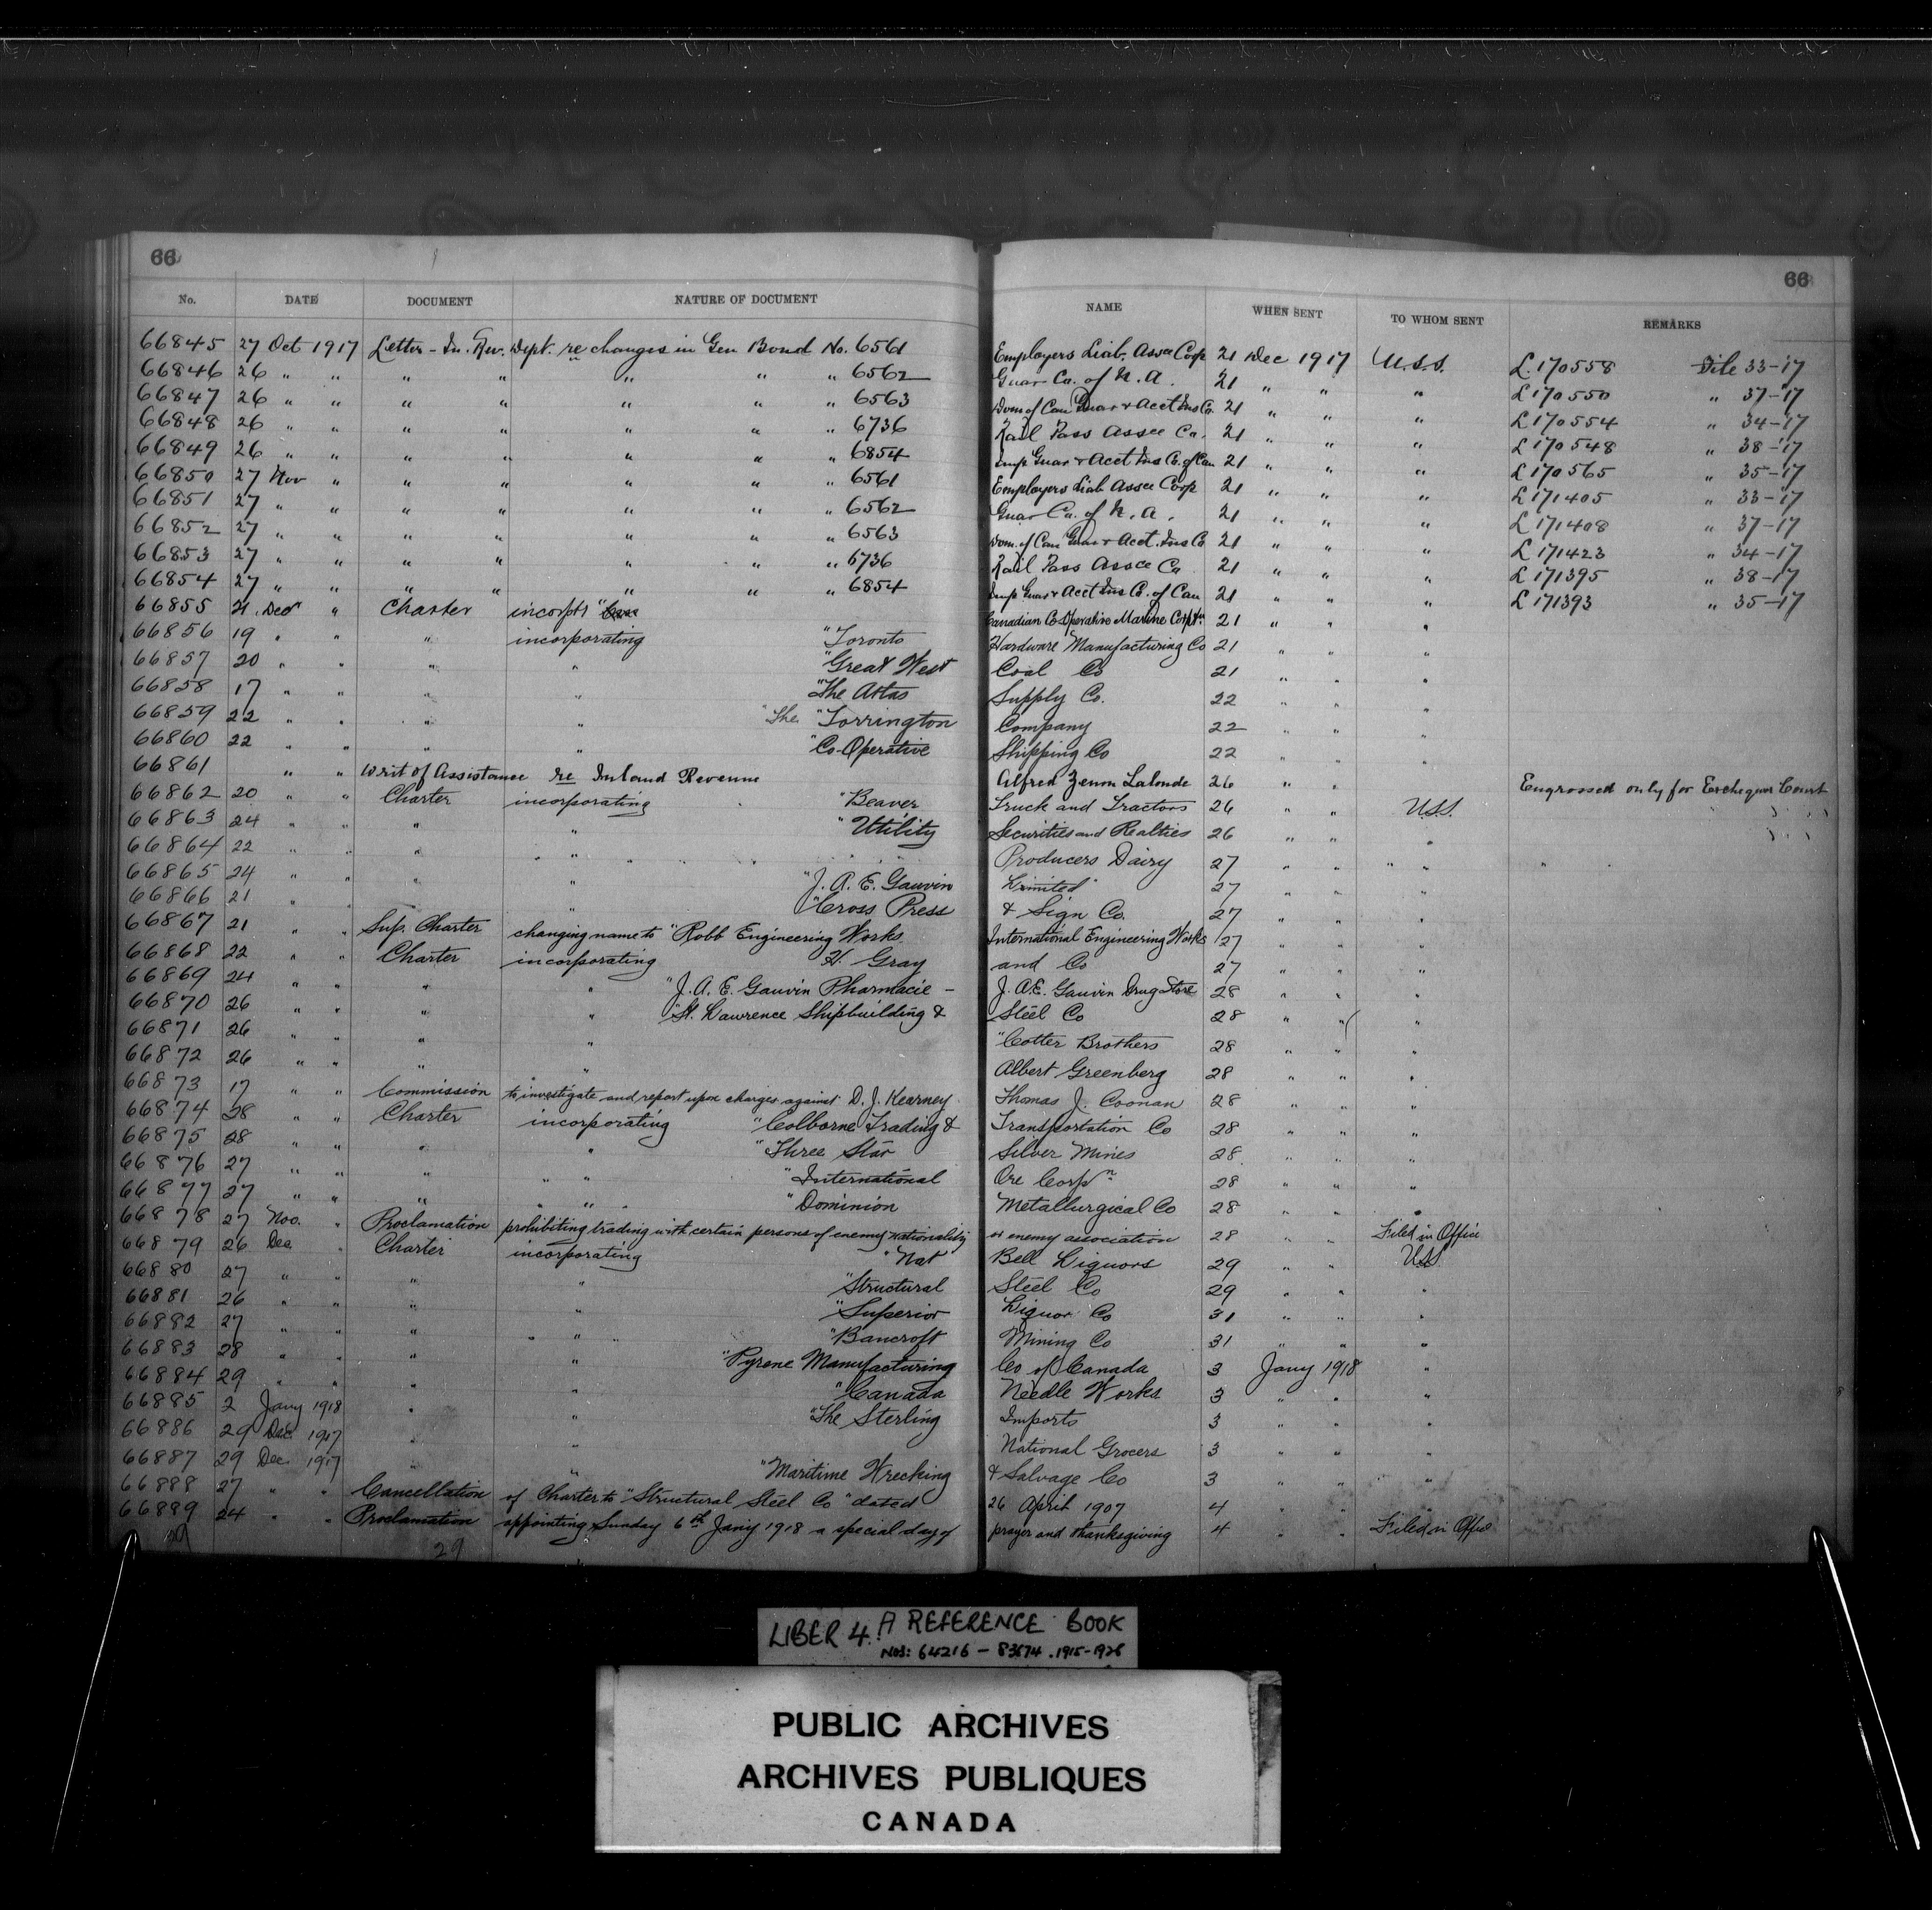 66 66
No. DATE DOCUMENT NATURE OF DOCUMENT NAME WHEN SENT TO WHOM SENT REMARKS
66845 27 Oct 1917 Letter - In. Rev. Dept. re changes in Gen Bond No. 6561 Employers Liab. Assce Corp 21 Dec 1917 U.S.S. L.170558 File 33-17
66846 26 " " " " " " " 6562 Guar Co. of N.A. 21 " " " L170550 " 37-17
66847 26 " " " " " " " 6563 Dom of Can Guar & Acct Ins Co. 21 " " " L170554 " 34-17
66848 26 " " " " " " " 6736 Rail Pass Assce Co. 21 " " " L170548 " 38-17
66849 26 " " " " " " " 6854 Imp Guar & Acct Ins Co. of Can 21 " " " L170565 " 35-17
66850 27 Nov " " " " " " 6561 Employers Liab Assce Corp 21 " " " L171405 " 33-17
66851 27 " " " " " " " 6562 Guar Co. of N.A. 21 " " " L171408 " 37-17
66852 27 " " " " " " " 6563 Dom. of Can Guar & Acct. Ins Co 21 " " " L171423 " 34-17
66853 27 " " " " " " " 6736 Rail Pass Assce Co 21 " " " L171395 " 38-17
66854 27 " " " " " " " 6854 Imp Guar & Acct Ins Co. of Can 21 " " " L171393 " 35-17
66855 21. Dec " Charter incorptg " Canadian Co-Operative Marine Corptn 21 " " "
66856 19 " " " incorporating "Toronto Hardware Manufacturing Co 21 " " "
66857 20 " " " " "Great West Coal Co 21 " " "
66858 17 " " " " "The Atlas Supply Co. 22 " " "
66859 22 " " " " "The "Torrington Company 22 " " "
66860 22 " " " " "Co-Operative Shipping Co 22 " " "
66861 " " Writ of Assistance re Inland Revenue Alfred Zenon Lalonde 26 " " Engrossed only for Exchequer Court
66862 20 " " Charter incorporating "Beaver Truck and Tractors 26 " " U.S.S.
66863 24 " " " " "Utility Securities and Realties 26 " " "
66864 22 " " " " Producers Dairy 27 " " "
66865 24 " " " " "J. A. E. Gauvin Limited" 27 " " "
66866 21 " " " " "Cross Press & Sign Co. 27 " " "
66867 21 " " Sup. Charter changing name to "Robb Engineering Works International Engineering Works 27 " " "
66868 22 " " Charter incorporating H. Gray and Co 27 " " "
66869 24 " " " " "J. A. E. Gauvin Pharmacie - J. A. E. Gauvin Drug Store 28 " " "
66870 26 " " " " "St. Lawrence Shipbuilding & Steel Co 28 " " "
66871 26 " " " " "Cotter Brothers 28 " " "
66872 26 " " " " Albert Greenberg 28 " " "
66873 17 " " Commission to investigate and report upon charges against D. J. Kearney Thomas J. Coonan 28 " " "
66874 28 " " Charter incorporating "Colborne Trading & Transportation Co 28 " " "
66875 28 " " " " "Three Star Silver Mines 28 " " "
66876 27 " " " " "International Ore Corpn 28 " " "
66877 27 " " " " "Dominion Metallurgical Co 28 " " "
66878 27 Nov. " Proclamation prohibiting trading with certain persons of enemy nationality or enemy association 28 " " Filed in Office
66879 26 Dec. " Charter incorporating "Nat Bell Liquors 29 " " U.S.S.
66880 27 " " " " "Structural Steel Co 29 " " "
66881 26 " " " " "Superior Liquor Co 31 " " "
66882 27 " " " " "Bancroft Mining Co 31 " " "
66883 28 " " " " "Pyrene Manufacturing Co of Canada 3 Jany 1918 "
66884 29 " " " " "Canada Needle Works 3 " " "
66885 2 Jany 1918 " " "The Sterling Imports 3 " " "
66886 29 Dec. 1917 " " National Grocers 3 " " "
66887 29 Dec. 1917 " " "Maritime Wrecking & Salvage Co 3 " " "
66888 27 " " Cancellation of Charter to "Structural Steel Co" dated 26 April 1907 4 " " "
66889 24 " " Proclamation appointing Sunday 6th Jany 1918 a special day of prayer and thanksgiving 4 " " Filed in Office
29
LIBER 4. A REFERENCE BOOK
NOS: 64216 - 83674 . 1915-1926
PUBLIC ARCHIVES
ARCHIVES PUBLIQUES
CANADA